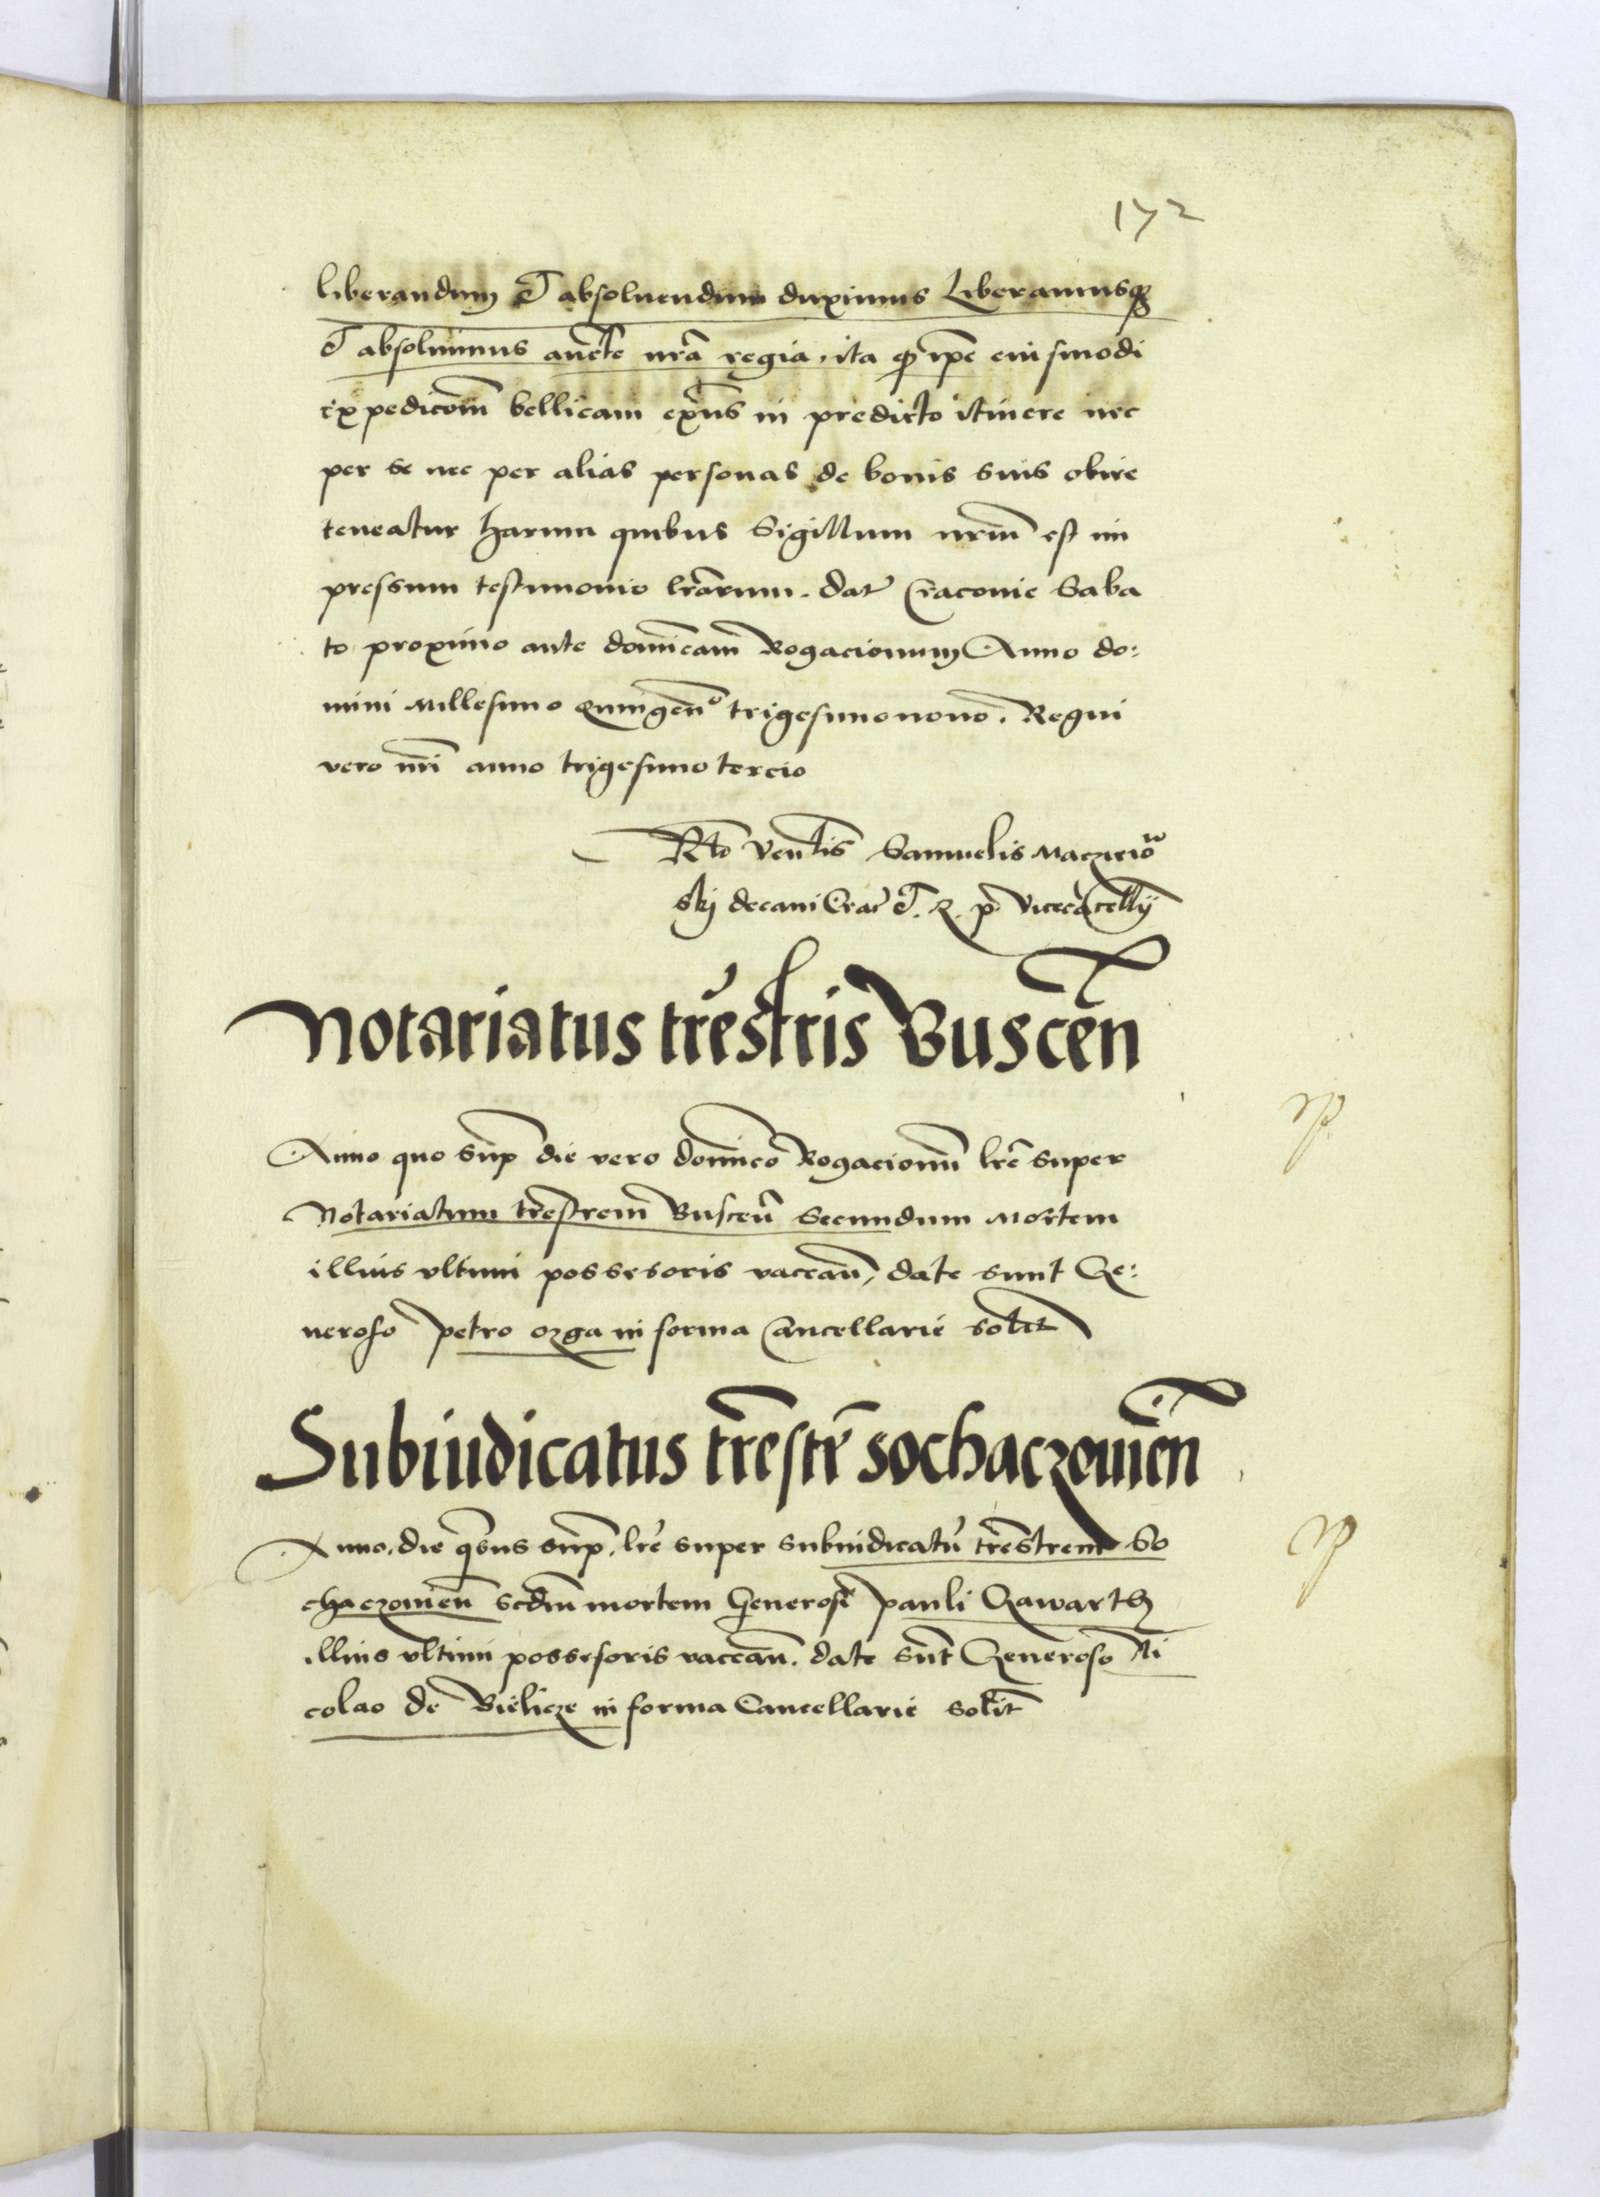 172
liberandum et absoluendum duximus Liberamusq
et absoluimus aucte nra regia, ita q ipe eiusmodi
expedicom bellicam exns in predicto itinere nec
per se nec per alias personas de bonis suis obire
teneatur harum quibus Sigillum nrum est im
pressum testimonio lrarum. dat Cracouie Saba
to proximo ante domicam Rogacionum Anno do:
mini Millesimo Quingen° trigesimonono. Regni
vero nri anno trigesimo tercio
Rto Venlis Samuelis Maczieio
skij decani Crac et. R. p. vicecacellij
Notariatus trestris Buscen
Anno quo sup die vero domico Rogacionu lre super
Notariatum trestrem Buscen Secundum Mortem
illius vltimi possesoris vacean, date sunt Ge:
neroso petro ozga in forma Cancellarie solit
Subiudicatus trestr Sochaczouien
Anno, die qbus sup, lre super subiudicatu trestrem So
chaczouien scdm mortem Generosi pauli Gawarth
illius vltimi possesoris vacean. date sunt Generoso Ni
colao de Bielicze in forma Cancellarie solit